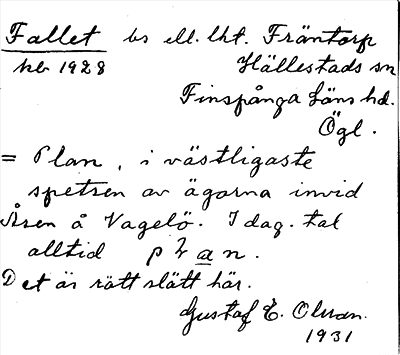 Fallet bs ell. lht. Fräntorp
hb 1928 Hällestads sn
Finspånga läns hd.
Ögl.
= Plan, i västligaste
spetsen av ägorna invid
Åsen å Vagelö. I dag. tal
alltid p l a n.
Det är rätt slätt här.
Gustaf E. Olsson.
1931